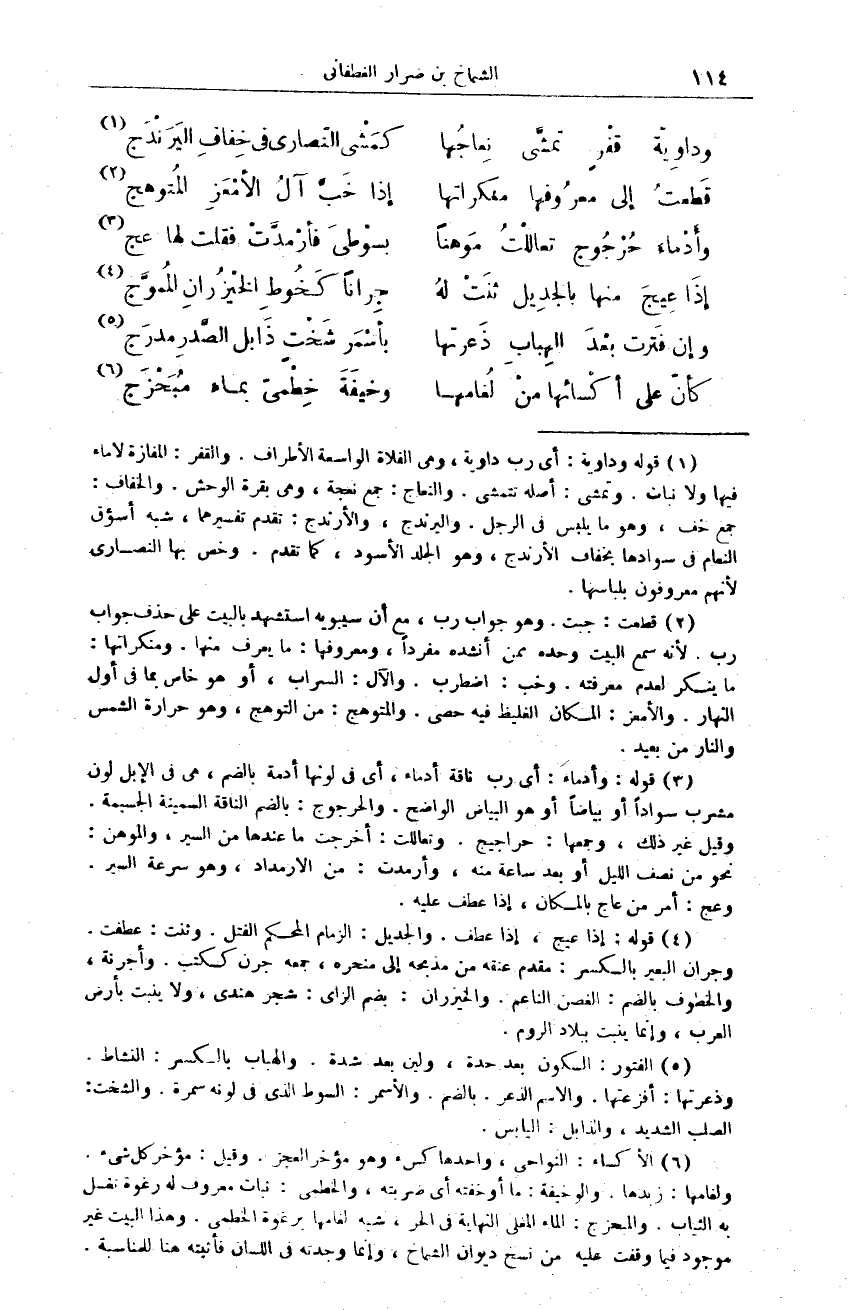 ١١٤ الشماخ بن ضرار الغطفانى
وداوِيَّة قفْرٍ تمشَّى نِعاجُها كمَشْىِ النّصارى فى خِفافِ اليَرَنْدَجِ (١)
قَطعتُ إلى معرُوفها منكراتها إذا خَبَّ آلُ الأمْعَزِ المُتوهجِ (٢)
وأَدْماء حُرْجُوجٍ تعاللْتُ مَوهناً بسوْطىَ فأرْمدَّتْ فقلت لها عجِ (٣)
إذَا عِيجَ منها بالجَدِيلِ ثنَتْ لهُ جِراناً كَخُوطِ الخيْزُرانِ المُموَّجِ (٤)
وإن فَترت بعْدَ الهِبابِ ذَعرتها بأسْمَر شَخْتٍ ذَابل الصَّدرِ مدرَجِ (٥)
كأنّ على أكْسائها منْ لُغامهـا وخيفَةَ خِطْمىّ بمـاء مُبَحْزَجِ (٦)
(١) قوله وداوية : أى رب داوية ، وهى الفلاة الواسعة الأطراف . والقفر : المفازة لاماء
فيها ولا نبات . وتمشى : أصله تتمشى . والنعاج : جمع نعجة ، وهى بقرة الوحش . والخفاف :
جمع خف ، وهو ما يلبس فى الرجل . واليرندج ، والأرندج : تقدم تفسيرهما ، شبه أسؤق
النعام فى سوادها بخفاف الأرندج ، وهو الجلد الأسود ، كما تقدم . وخص بها النصـارى
لأنهم معروفون بلباسها .
(٢) قطعت : جبت . وهو جواب رب ، مع أن سيبويه استشهد بالبيت على حذف جواب
رب . لأنه سمع البيت وحده ممن أنشده مفرداً ، ومعروفها : ما يعرف منها . ومنكراتها :
ما ينـكر لعدم معرفته . وخب : اضطرب . والآل : السراب ، أو هو خاص بما فى أول
النهار . والأمعز : المـكان الغليظ فيه حصى . والمتوهج : من التوهج ، وهو حرارة الشمس
والنار من بعيد .
(٣) قوله : وأدماء : أى رب ناقة أدماء ، أى فى لونها أدمة بالضم ، هى فى الإبل لون
مشرب سواداً أو بياضاً أو هو البياض الواضح . والحرجوج : بالضم الناقة السمينة الجسيمة .
وقيل غير ذلك ، وجمعها : حراجيج . وتعاللت : أخرجت ما عندها من السير ، والموهن :
نحو من نصف الليل أو بعد ساعة منه ، وأرمدت : من الارمداد ، وهو سرعة السير .
وعج : أمر من عاج بالمـكان ، إذا عطف عليه .
(٤) قوله : إذا عيج ، إذا عطف . والجديل : الزمام المحـكم الفتل . وثنت : عطفت .
وجران البعير بالـكسر : مقدم عنقه من مذبحه إلى منحره ، جمعه جرن كـكتب . وأجرنة ،
والخطوف بالضم : الغصن الناعم . والخيزران : بضم الزاى : شجر هندى ، ولا ينبت بأرض
العرب ، وإنما ينبت ببلاد الروم .
(٥) الفتور : السكون بعد حدة ، ولين بعد شدة . والهباب بالـكسر : النشاط .
وذعرتها : أفزعتها . والاسم الذعر . بالضم . والأسمر : السوط الذى فى لونه سمرة . والشخت:
الصلب الشديد ، والذابل : اليابس .
(٦) الأكساء : النواحى ، واحدها كسء وهو مؤخر العجز . وقيل : مؤخر كل شىء .
ولغامها : زبدها . والوخيفة : ما أوخفته أى ضربته ، والخطمى : نبات معروف له رغوة تغسل
به الثياب . والمبحزج : الماء المغلى النهاية فى الحر ، شبه لغامها برغوة الخطمى . وهذا البيت غير
موجود فيما وقفت عليه من نسخ ديوان الشماخ ، وإنما وجدته فى اللسان فأثبته هنا للمناسبة .